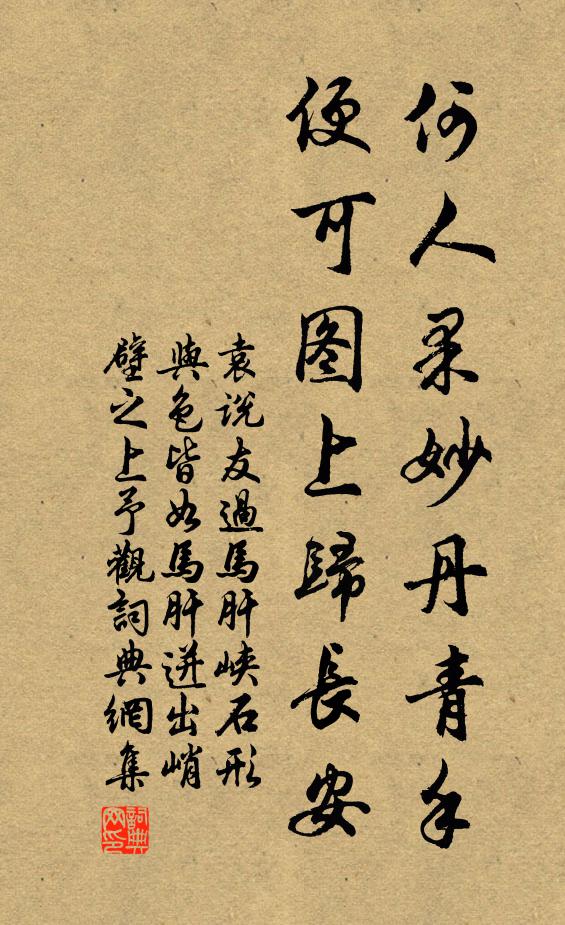 何人果妙丹青手
便可图上歸長安
袁说友過馬肝峡石形
與色皆如馬肝迸出峭
壁之上予觀詞典網集
詞典网印